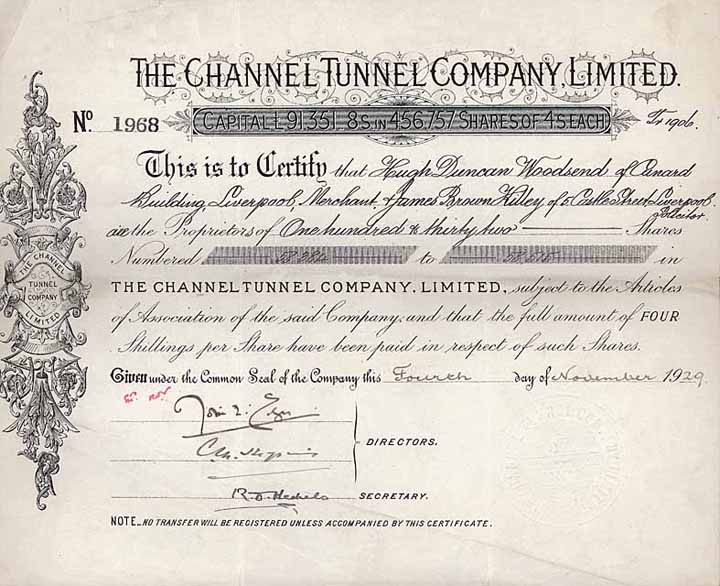 THE CHANNEL TUNNEL COMPANY, LIMITED.
No. 1968
CAPITAL £91,351. 8s. IN 456,757 SHARES OF 4s EACH.
Tr 1906.
This is to Certify that Hugh Duncan Woodsend of Cunard
Building, Liverpool, Merchant & James Brown Kitley of 5 Castle Street, Liverpool
Solicitor
are the Proprietors of One hundred & thirty two Shares
Numbered to in
THE CHANNEL TUNNEL COMPANY, LIMITED, subject to the Articles
of Association of the said Company, and that the full amount of FOUR
Shillings per Share have been paid in respect of such Shares.
Given under the Common Seal of the Company this Fourth day of November 1929.
DIRECTORS.
SECRETARY.
NOTE_NO TRANSFER WILL BE REGISTERED UNLESS ACCOMPANIED BY THIS CERTIFICATE.
THE CHANNEL
TUNNEL
COMPANY
LIMITED